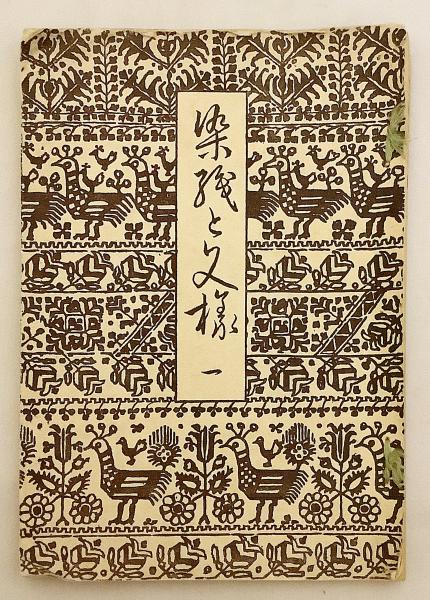 染織と文様 一